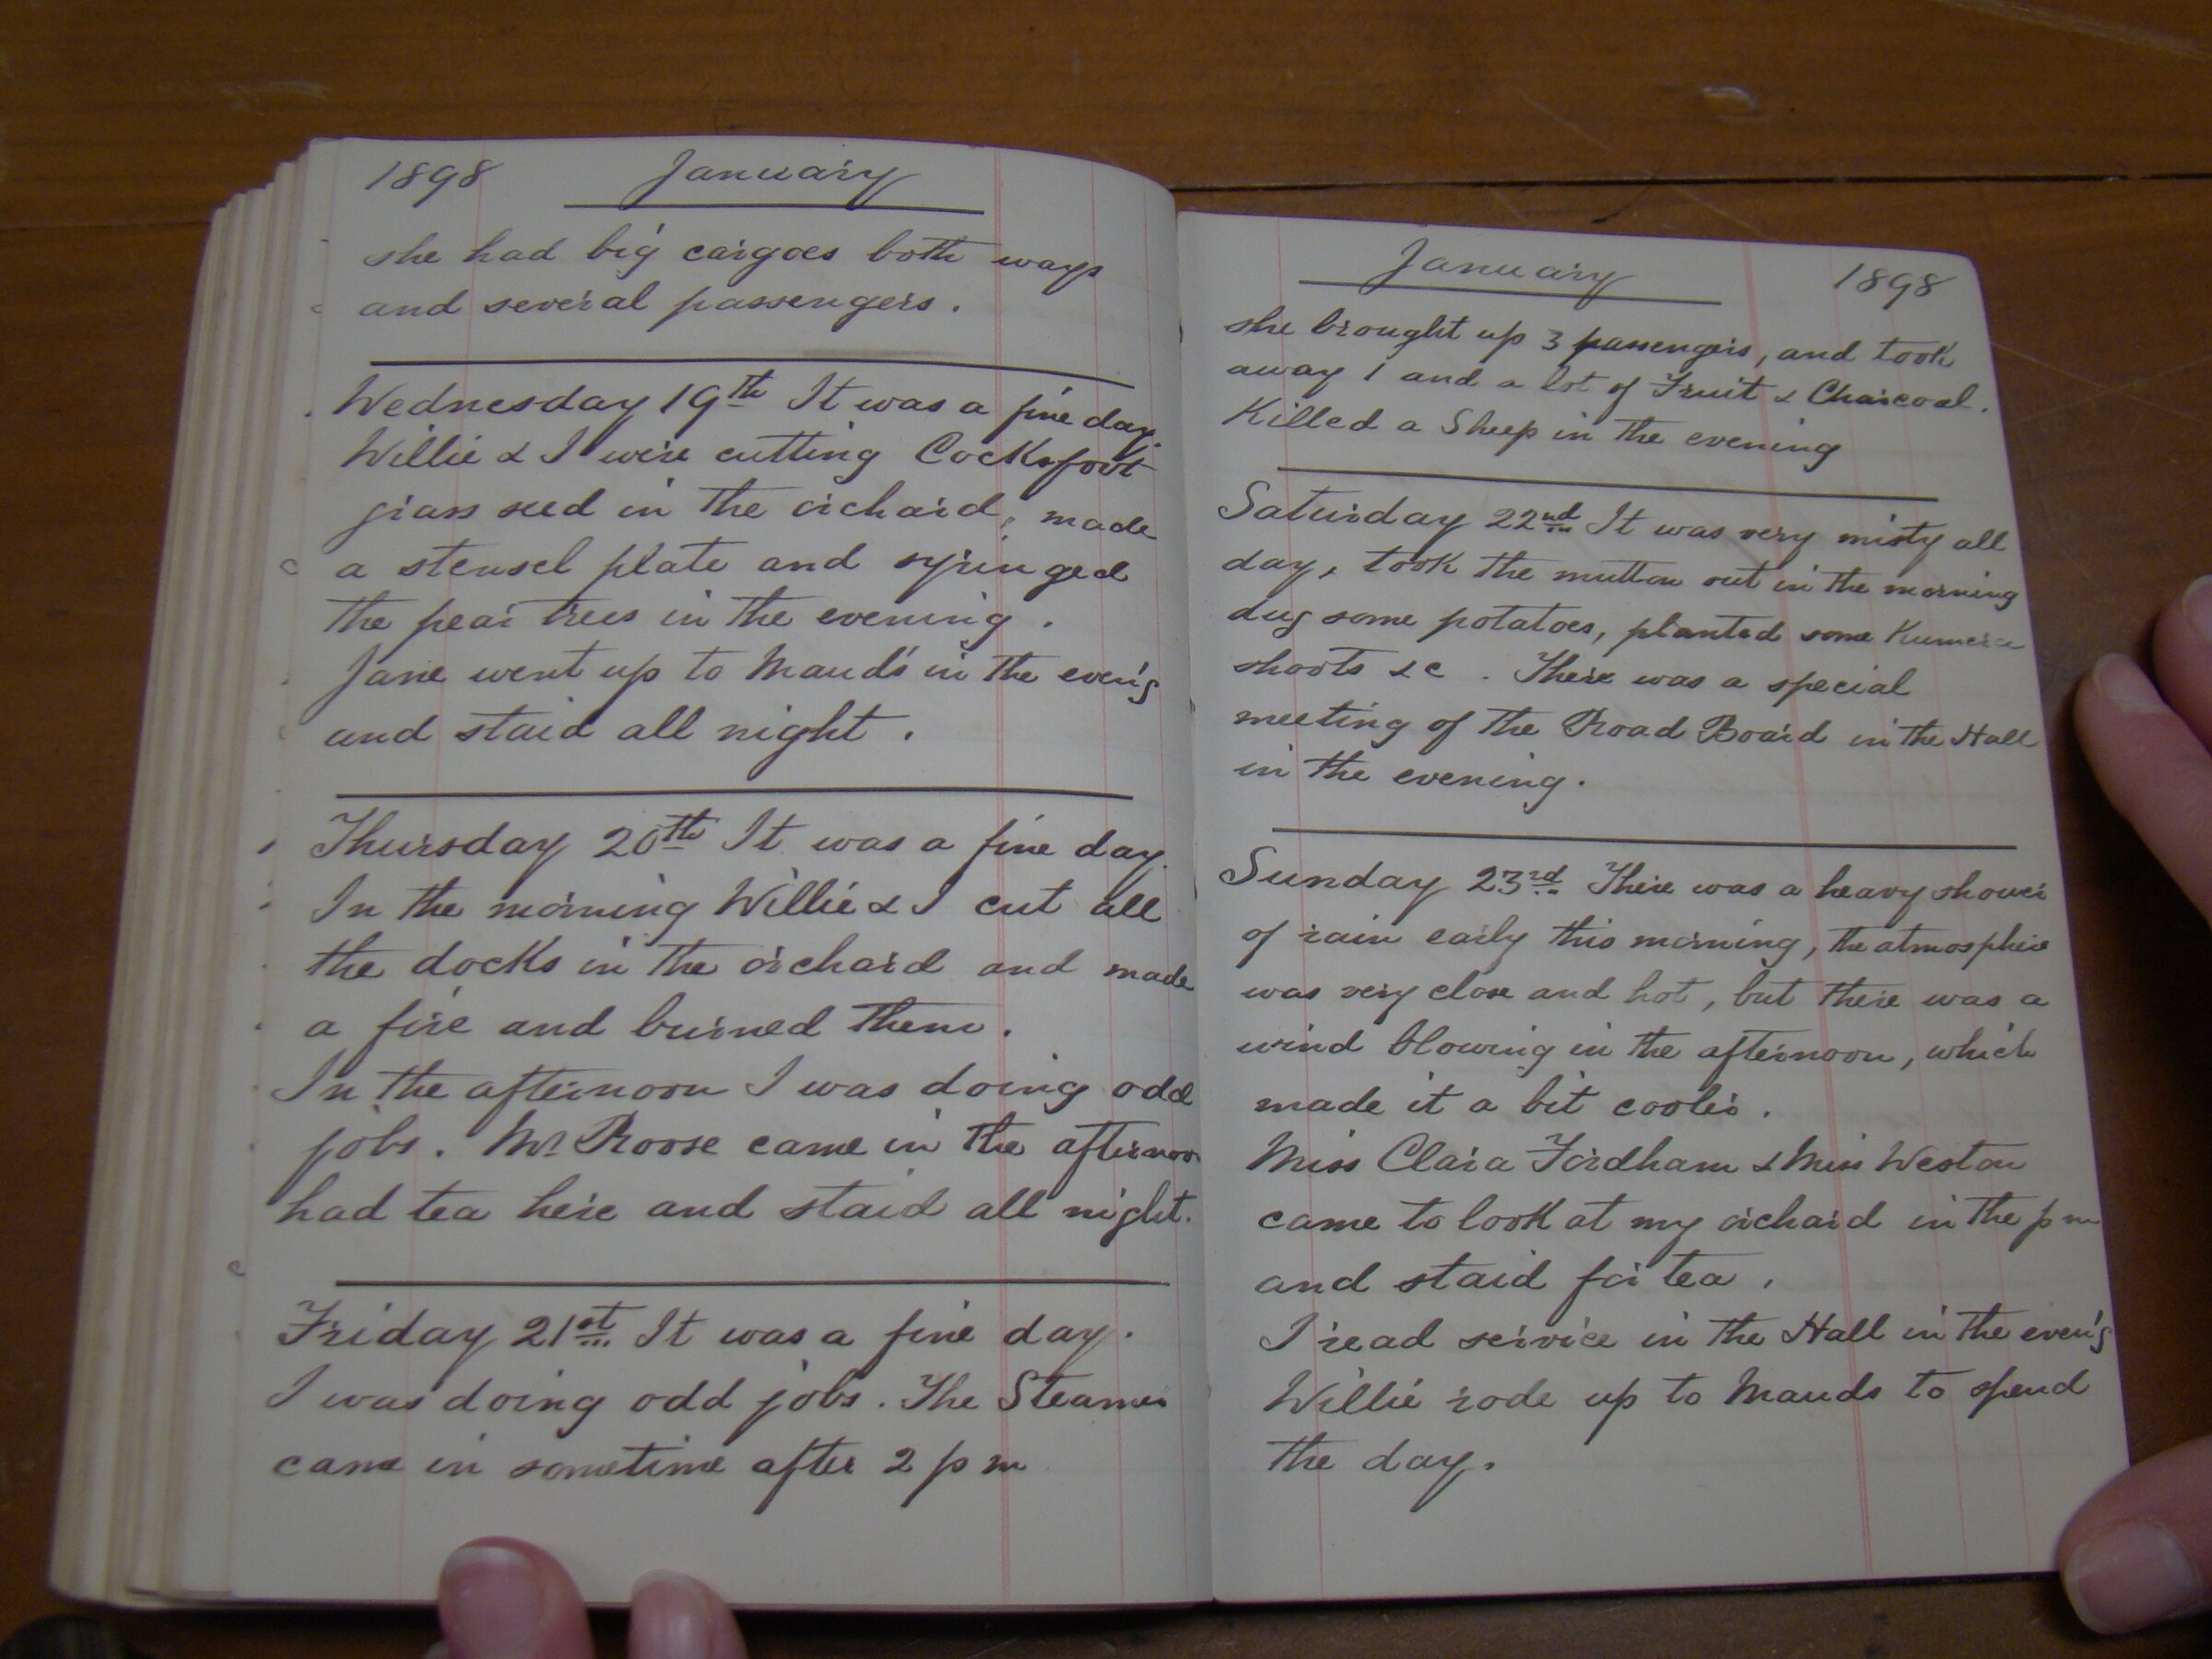 1898 January
she had big cargoes both ways
and several passengers.
Wednesday 19th It was a fine day.
Willie & I were cutting Cocksfoot
grass seed in the orchard, made
a stensel plate and syringed
the pear trees in the evening.
Jane went up to Maud's in the even'g
and staid all night.
Thursday 20th It was a fine day.
In the morning Willie & I cut all
the docks in the orchard and made
a fire and burned them.
In the afternoon I was doing odd
jobs. Mr Roose came in the afternoon
had tea here and staid all night.
Friday 21st It was a fine day.
I was doing odd jobs. The Steamer
came in sometime after 2 p m
January 1898
she brought up 3 passengers, and took
away 1 and a lot of Fruit & Charcoal.
Killed a Sheep in the evening
Saturday 22nd It was very misty all
day, took the mutton out in the morning
dug some potatoes, planted some Kumera
shoots &c. There was a special
meeting of the Road Board in the Hall
in the evening.
Sunday 23rd There was a heavy shower
of rain early this morning, the atmosphere
was very close and hot, but there was a
wind blowing in the afternoon, which
made it a bit cooler.
Miss Clara Fordham & Miss Weston
came to look at my orchard in the p m
and staid for tea.
I read service in the Hall in the even'g
Willie rode up to Mauds to spend
the day.